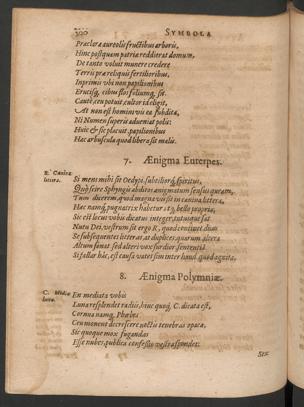 300 SYMBOLA
Præclara aureolis fructibus arboris,
Hinc postquam patriæ reddierat domum,
De tanto voluit munere credere
Terris præ reliquis fertilioribus,
Inprimis ubi non papilionibus
Erucisq́; cibus flos foliumq́; sit.
Caute, ceu potuit, cultor id eligit,
At non est homini vis ea subdita,
Ni Numen superis adveniat polis:
Huic & sic placuit, papilionibus
Hac arbuscula quod libera sit malis.
7. Ænigma Euterpes.
Si mens mihi sit Oedypi, subtiliorq́; spiritus,
Quo scire Sphyngis abditos ænigmatum sensus queam,
Tum dicerem, quod magna vis sit in canina littera,
Hac namq́; pugnatrix habetur
Sic est locus vobis dicatus integer, tutusque sat
Nutu Dei, vestrum sit ergo R, quod continet
Se subsequentes litteras, at duplices, quarum altera
Altum sonat, sed alteri vox surdior
Si fallar hac, est causa vates
8. Ænigma Polymniæ.
C. Mediæ
En mediata vobis
Luna resplendet radiis, huic quoq́; C. dicata est,
Cornua namq́; Phœbes
Ceu monent decrescere noctis tenebras opaca,
Sic quoque mox fugandas
Esse nubes, publica confessio